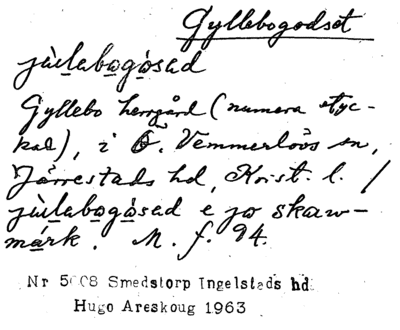 Gyllebogodset
jùlabogòsad
Gyllebo herrgård (numera styc-
kad), i Ö. Vemmerlövs sn,
Järrestads hd, Krist. l. /
jùlabogòsad e jo skaw-
márk. M. f. 94.
Nr 5008 Smedstorp Ingelstads hd
Hugo Areskoug 1963